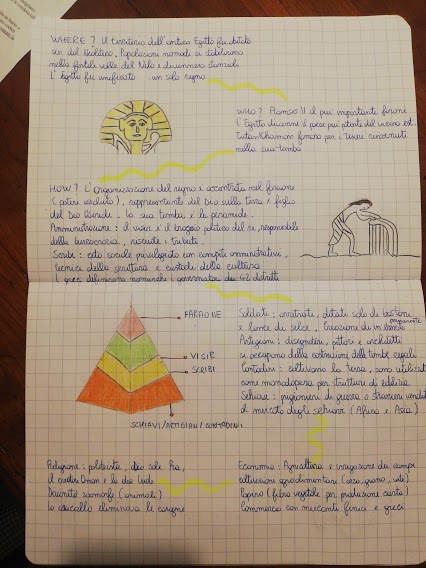 WHERE? Il territorio dell'antico Egitto fu abitato
sin dal Neolitico. Popolazioni nomadi si stabilirono
nella fertile valle del Nilo e divennero
L'Egitto fu unificato un solo regno
WHO? Ramses II il piu' importante faraone
L'Egitto divenne il paese piu' potente del vicino est.
Tutankhamon famoso per i tesori
nella sua tomba
HOW? L'organizzazione del regno è accentrata nel faraone
(potere assoluto), rappresentante del Dio sulla terra e figlio
del Dio la sua tomba è la piramide.
Amministrazione: il visir è il braccio politico del re, responsabile
della burocrazia, e tributi.
Scribi: ceto sociale privilegiato con compiti amministrativi,
tecnici della scrittura e custodi della cultura
I greci nomarchi i governatori dei 42 distretti
FARAONE
VISIR
SCRIBI
SCHIAVI/ARTIGIANI/CONTADINI
Soldati: arretrati, dotati solo di bastoni
e lance di selce. Creazione di un esercito permanente
Artigiani: disegnatori, pittori e architetti
si occupano della costruzione delle tombe regali
Contadini: coltivano la terra, sono utilizzati
come manodopera per strutture di edilizia
Schiavi: prigionieri di guerra o stranieri venduti
al mercato degli schiavi (Africa e Asia)
Religione: politeista, dio sole Ra,
il creator e la dea
Divinità zoomorfe (animali)
lo sciacallo eliminava le carogne
Economia: Agricoltura e irrigazione dei campi
coltivazioni agroalimentari (orzo, grano, )
Papiro (fibra vegetale per produzione carta)
Commercio con mercanti fenici e greci